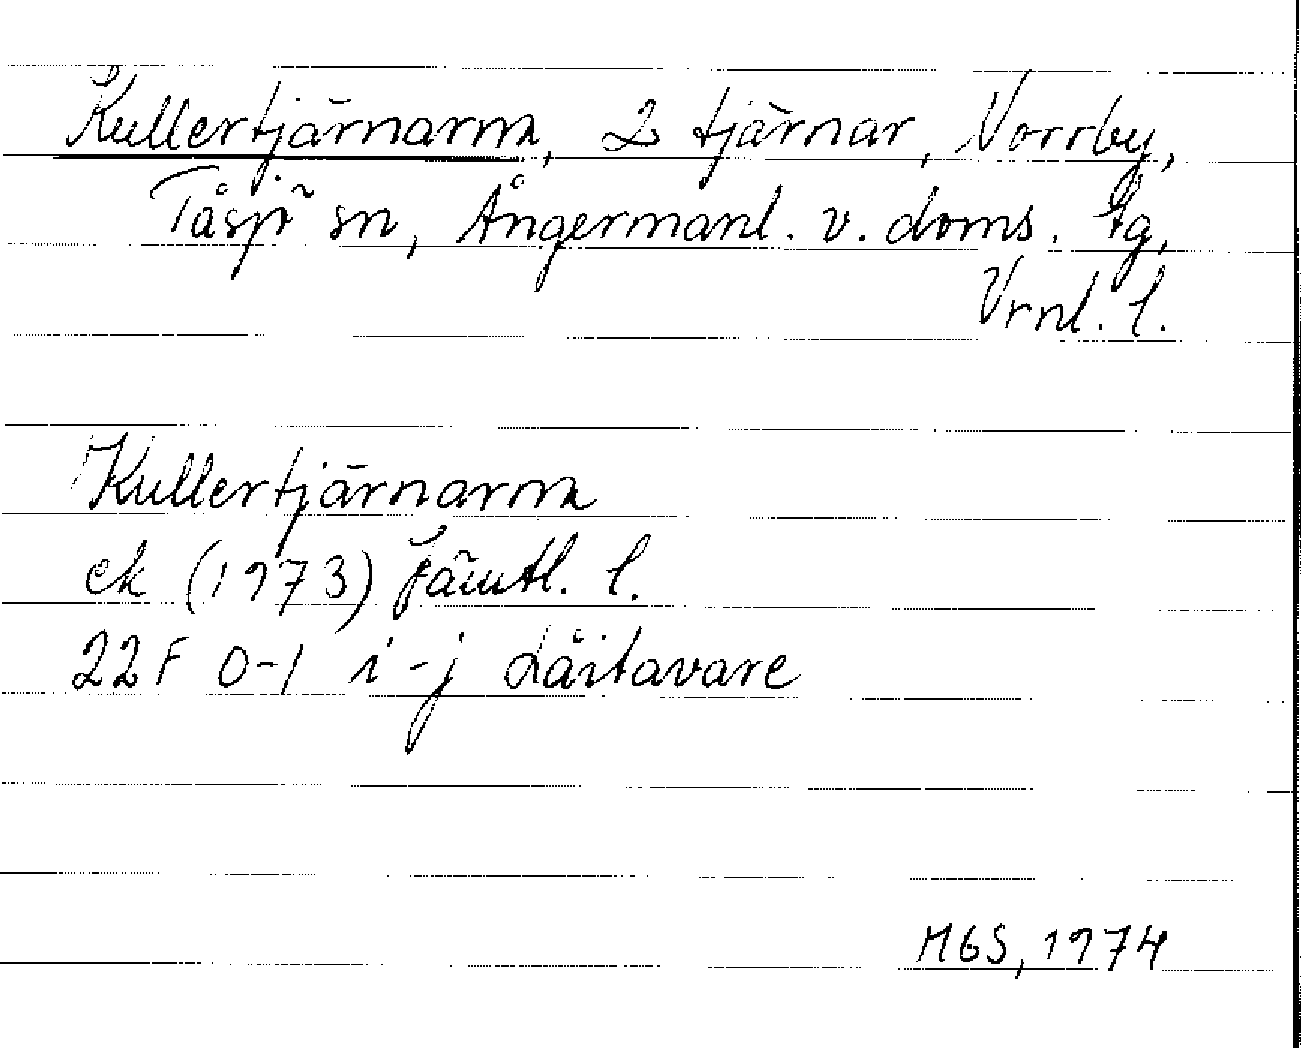 Kullertjärnarna, 2 tjärnar, Norrby,
Tåsjö sn, Ångermanl. v. doms. tg,
Vrnl. l.
Kullertjärnarna
ek (1973) Jämtl. l.
22F 0-1 i-j Låitavare
MGS, 1974